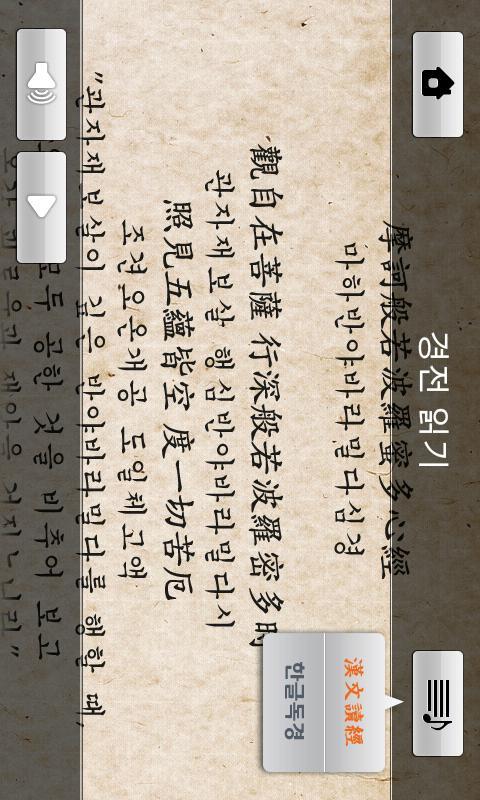 경전 읽기
摩訶般若波羅蜜多心經
마하반야바라밀다심경
漢文讀經
한글독경
觀自在菩薩 行深般若波羅密多時
관자재보살 행심반야바라밀다시
照見五蘊皆空 度一切苦厄
조견오온개공 도일체고액
"관자재보살이 깊은 반야바라밀다를 행할 때,
모두 공한 것을 비추어 보고